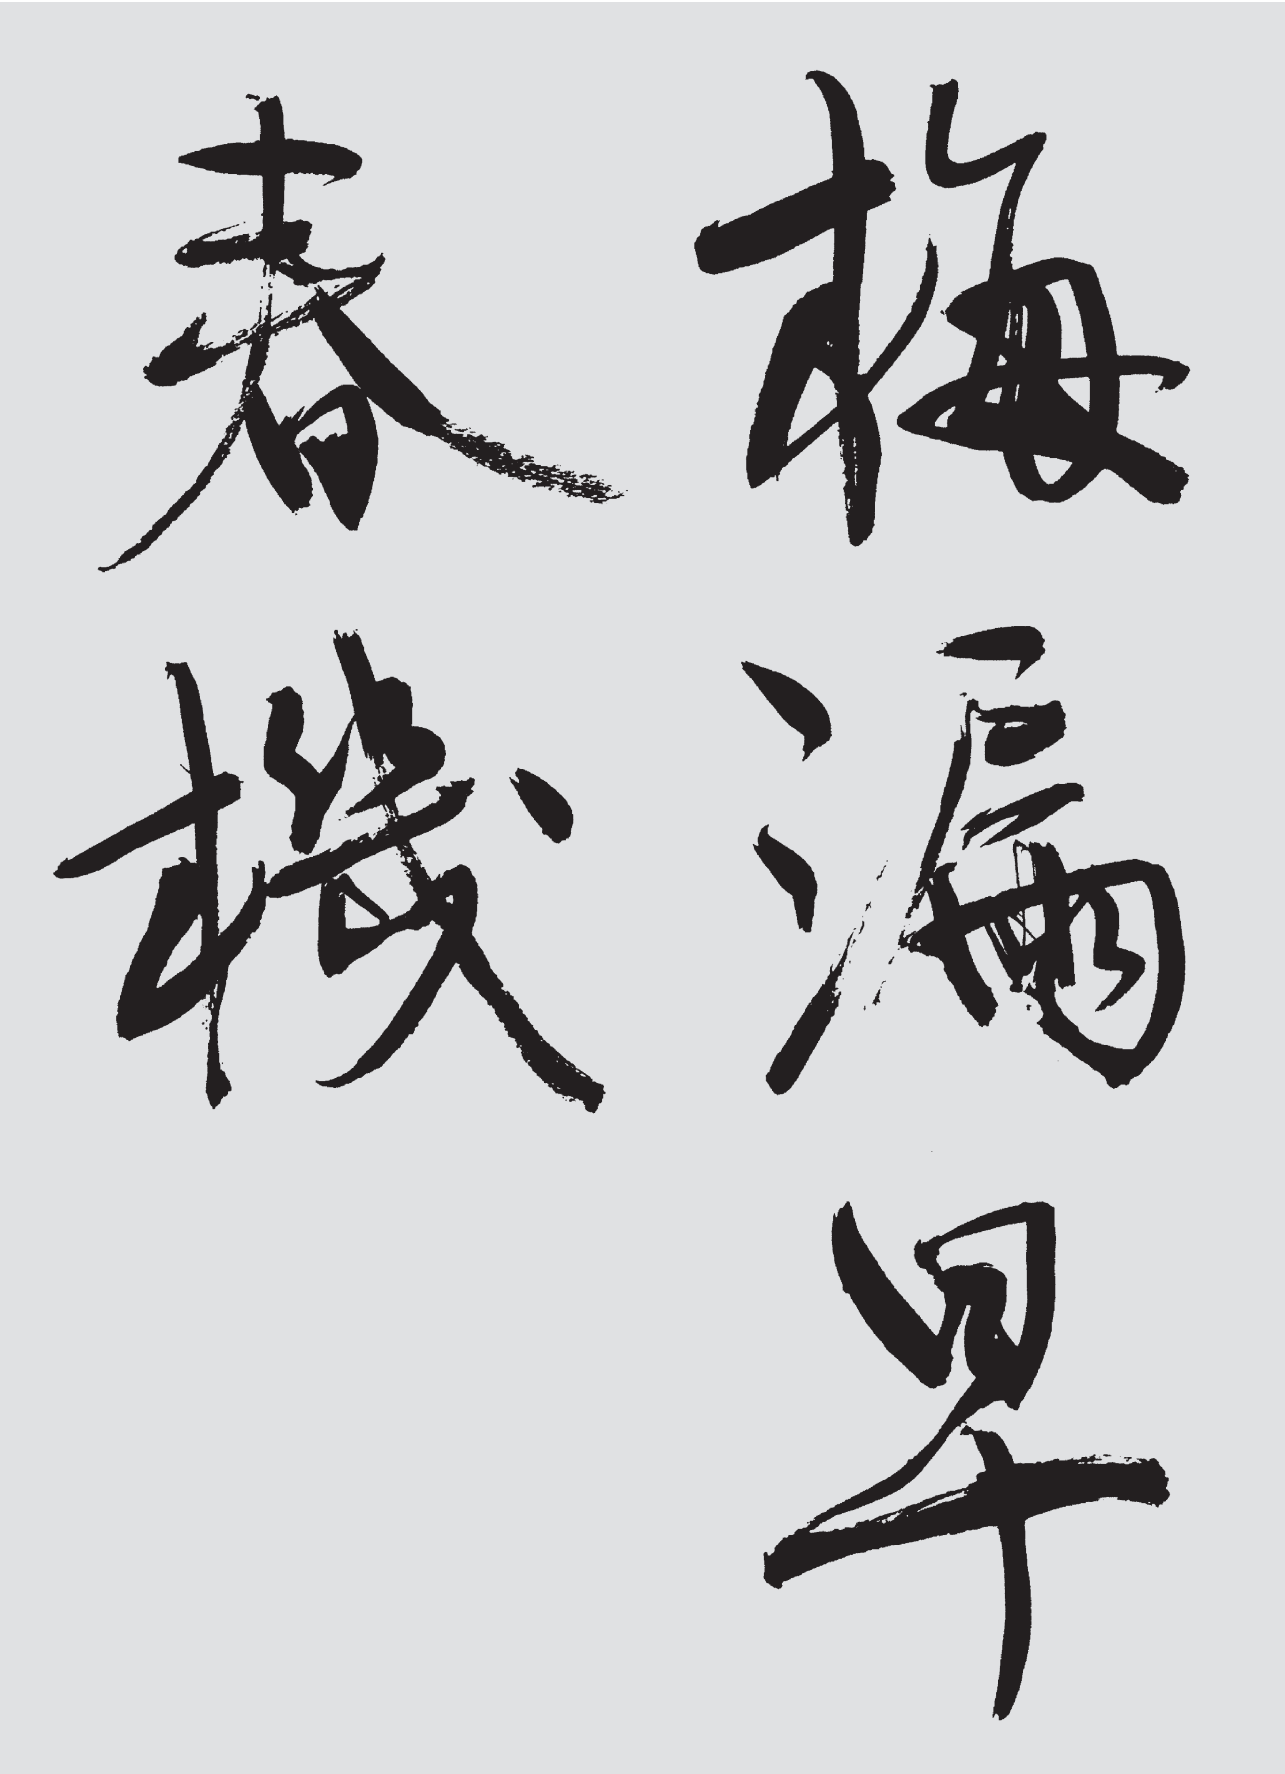 梅漏早
春機